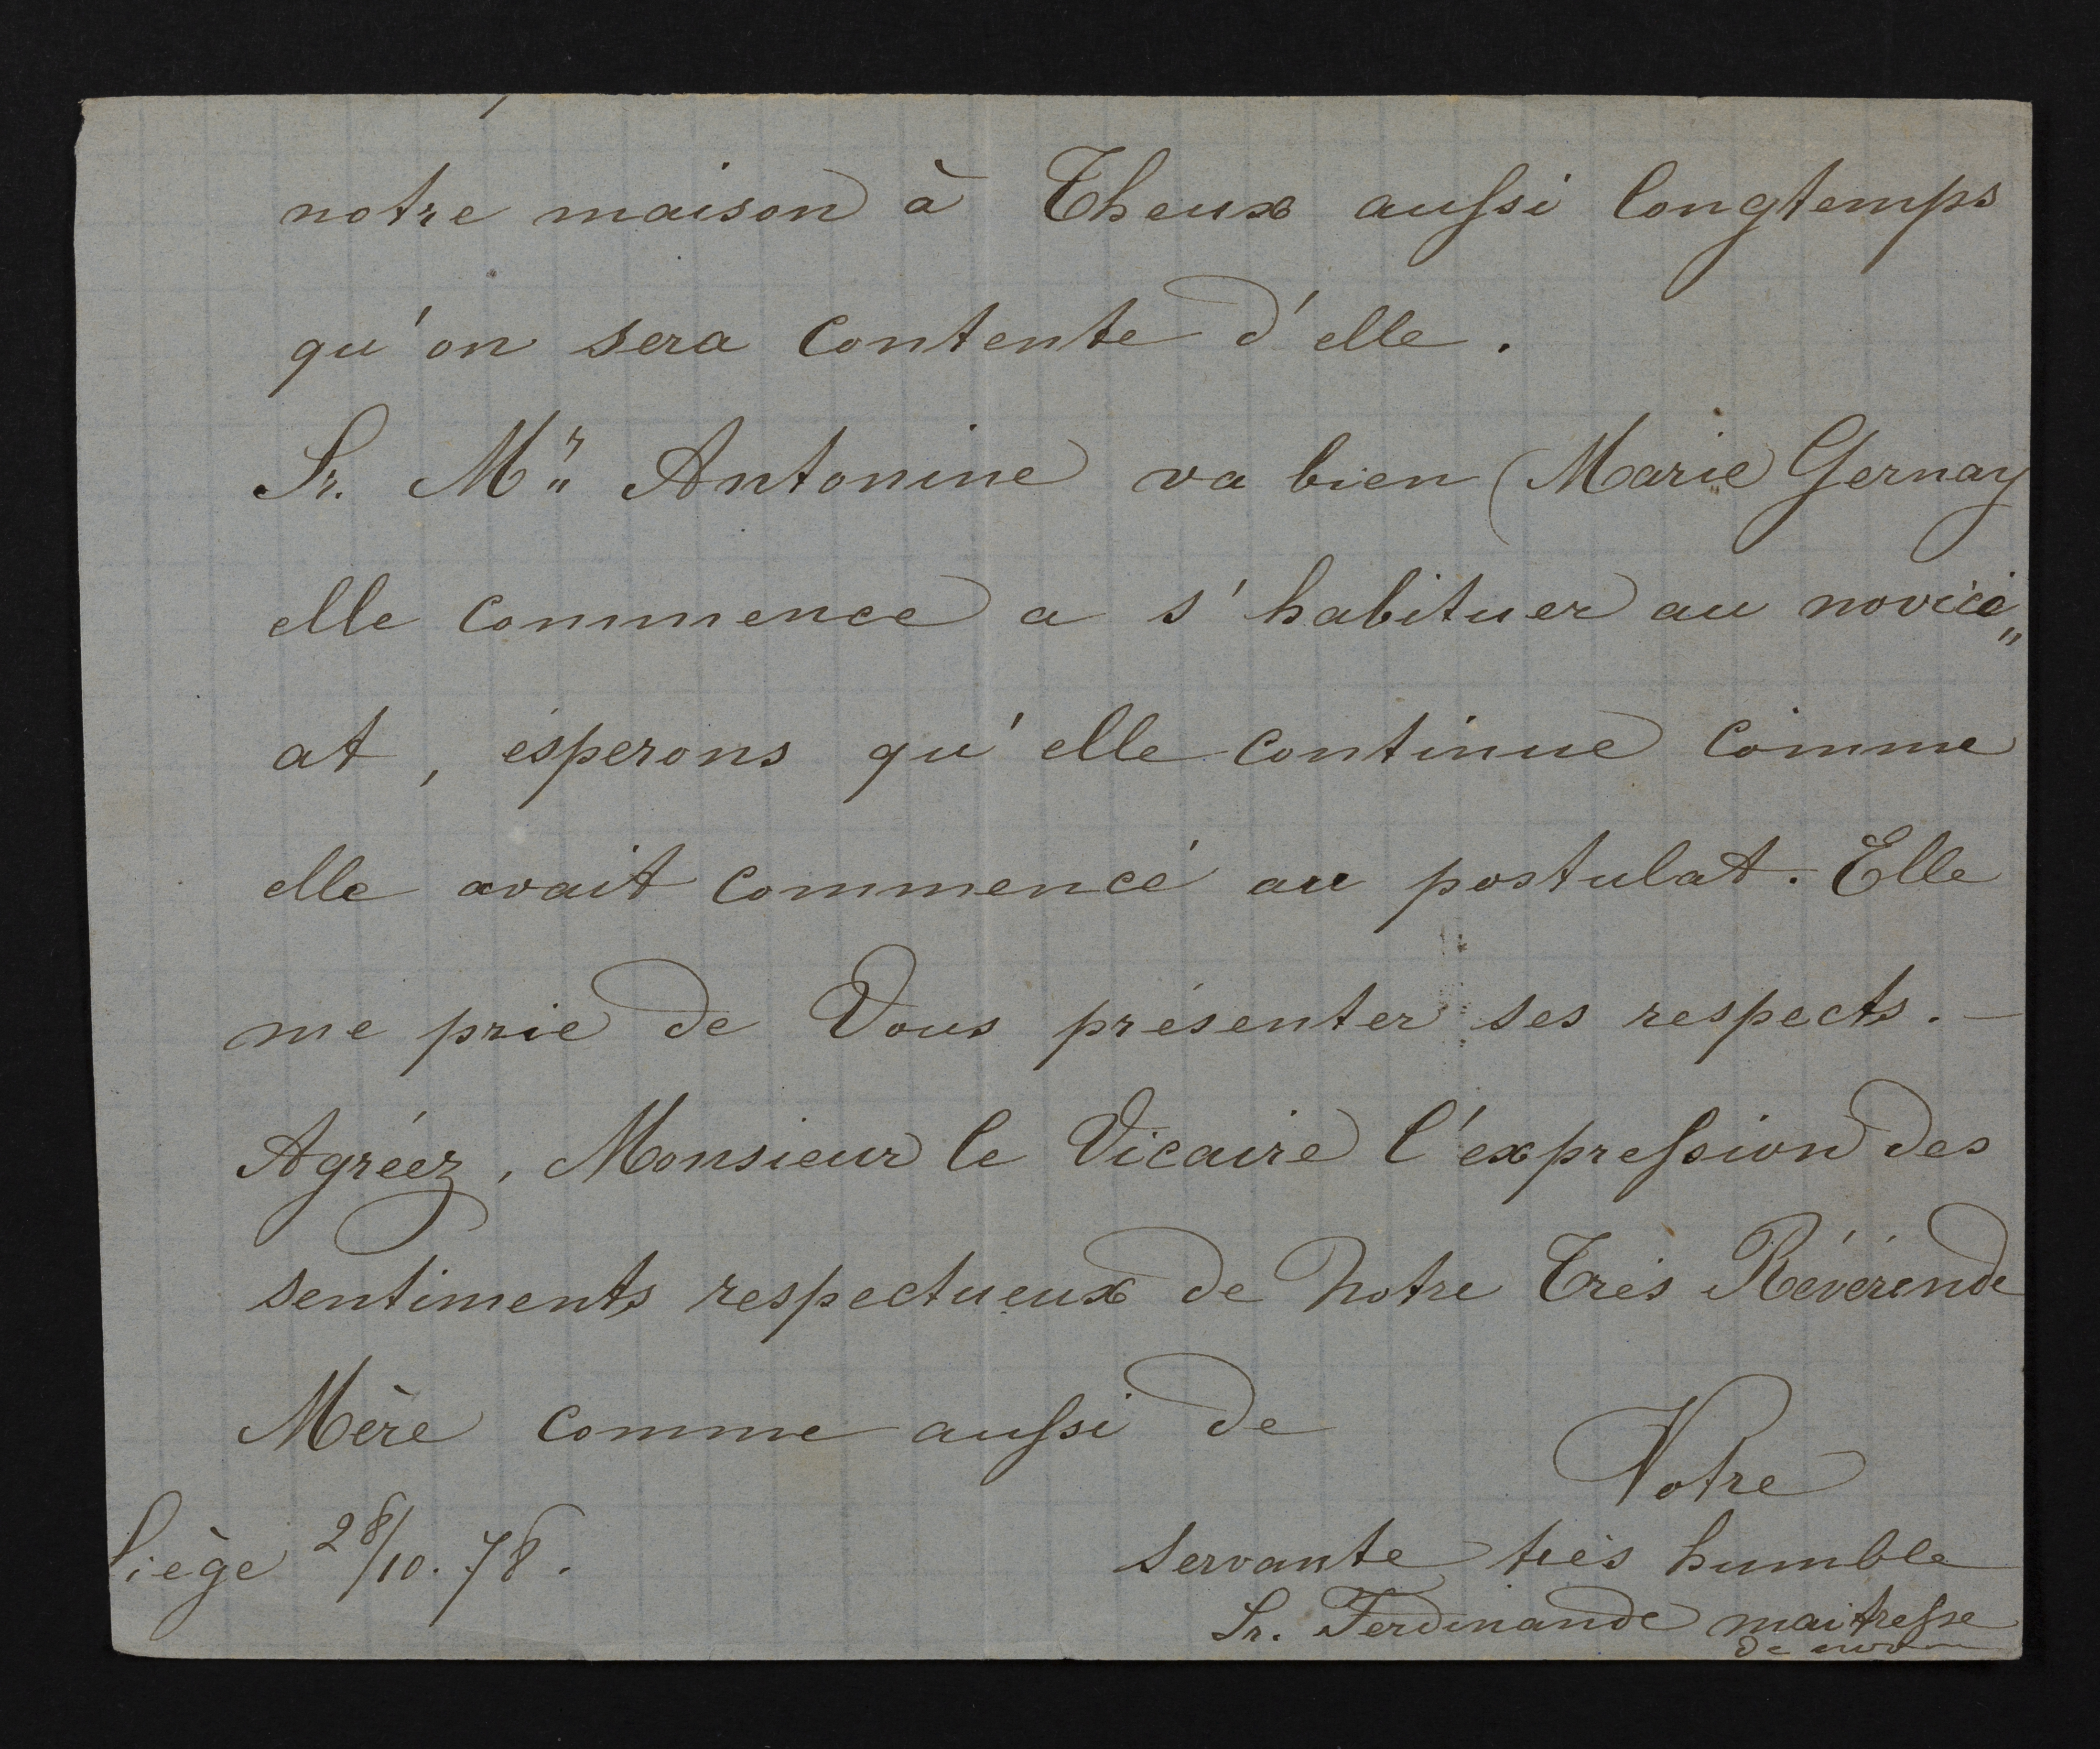 notre maison à Theux aussi longtemps
qu'on sera contente d'elle.
Sr. Mr" Antonine va bien (Marie Gernay
elle commence a s'habituer au novici„
at, ésperons qu'elle continue comme
elle avait commencé au postulat. Elle
me prie de Vous présenter ses respects. —
Agréez, Monsieur le Vicaire l'expression des
sentiments respectueux de Notre Très Révérende
Mère comme aussi de
Votre
servante très humble
Sr. Ferdinande maitresse
de
Liège 28/10. 78.